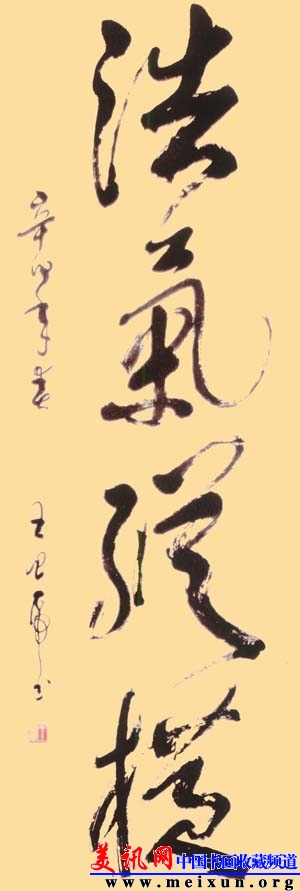 浩氣縱橫
辛卯年春
美讯网 中国书画收藏频道
www.meixun.org